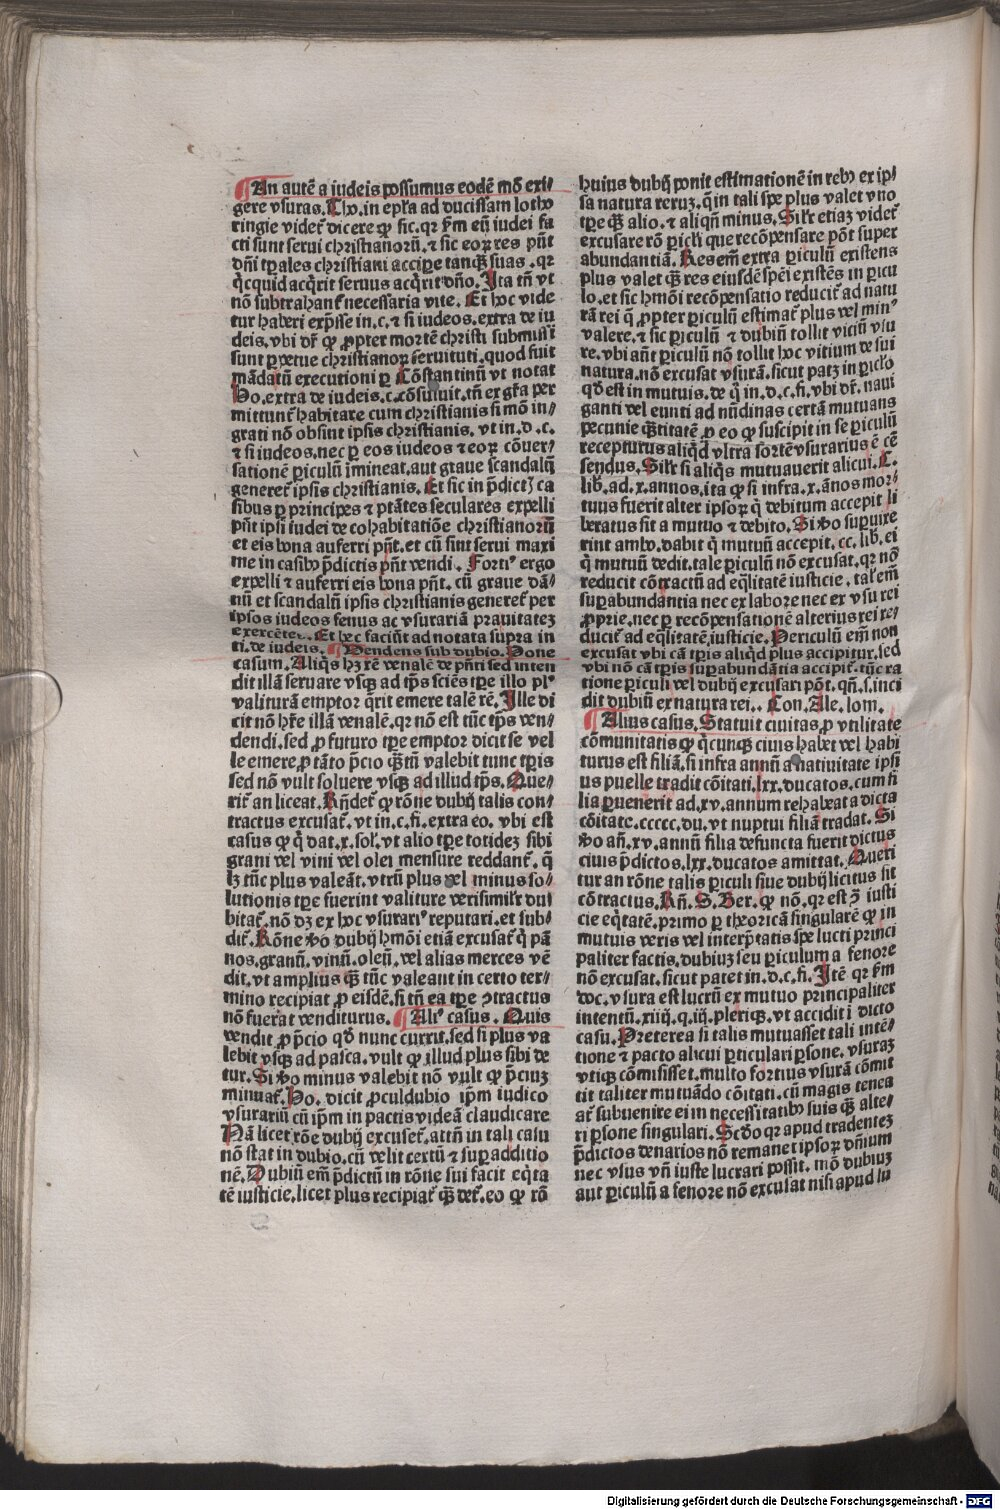 ¶An autē a iudeis possumus eodē mō exi⸗
gere vsuras. Tho. in epl̄a ad ducissam lotho
ringie videt᷑ dicere ꝙ sic. qꝛ s̄m eū iudei fa
cti sunt serui christianoꝝ. ⁊ sic eoꝝ res pn̄t
dn̄i tꝑales christiani accipe tanqꝫ suas. qꝛ
qͥcquid acqͥrit seruus acqͥrit dn̄o. Ita tn̄ vt
nō subtrahant᷑ necessaria vite. Et hoc vide
tur haberi exp̄sse in .c. ⁊ si iudeos. extra de iu
deis. vbi dr̄ ꝙ ꝓpter mortē christi submissi
sunt ꝑpetue christianoꝝ seruituti. quod fuit
mādatū executioni ꝑ Cōstantinū vt notat
Ho. extra de iudeis. c. cōsuluit. tn̄ ex gr̄a per
mittunt᷑ habitare cum christianis si mō in⸗
grati nō obsint ipsis christianis. vt in .d. c.
⁊ si iudeos. nec ꝑ eos iudeos ⁊ eoꝝ cōuer⸗
sationē ꝑiculū īmineat. aut graue scandalū
generet᷑ ipsis christianis. Et sic in p̄dictꝭ ca
sibus ꝑ principes ⁊ ptātes seculares expelli
pn̄t ipsi iudei de cohabitatiōe christianoꝝ
et eis bona auferri pn̄t. et cū sint serui maxi
me in casibꝰ p̄dictis pn̄t vendi. Fortiꝰ ergo
expelli ⁊ auferri eis bona pn̄t. cū graue dā⸗
nū et scandalū ipsis christianis generet᷑ per
ipsos iudeos fenus ac vsurariā prauitatez
exercētes. Et hec faciūt ad notata supra in
ti. de iudeis. ¶ Vendens sub dubio. Pone
casum. Aliqͥs hꝫ rē venalē de pn̄ti sed inten
dit illā seruare vsqꝫ ad tp̄s sciēs tꝑe illo plꝰ
valiturā emptor q̄rit emere talē rē. Ille di
cit nō hr̄e illā venalē. qꝛ nō est tūc tp̄s ven⸗
dendi. sed ꝓ futuro tꝑe emptor dicit se vel
le emere ꝓ tāto p̄cio qꝫtū valebit tunc tꝑis
sed nō vult soluere vsqꝫ ad illud tp̄s. Que⸗
rit᷑ an liceat. Rn̄det᷑ ꝙ rōne dubij talis con⸗
tractus excusat᷑. vt in .c. fi. extra eo. vbi est
casus ꝙ qͥ dat .x. sol᷑. vt alio tꝑe totidez sibi
grani vel vini vel olei mensure reddant᷑. q̄
lꝫ tūc plus valeāt. vtrū plus vel minus so⸗
lutionis tꝑe fuerint valiture verisimilr̄ du⸗
bitat᷑. nō dꝫ ex hoc vsurariꝰ reputari. et sub⸗
dit᷑. Rōne ꝟo dubij hmōi etiā excusat᷑ qͥ pā
nos. granū. vinū. oleū. vel alias merces vē
dit. vt ampliꝰ qꝫ tūc valeant in certo ter⸗
mino recipiat ꝓ eisdē. si tn̄ ea tꝑe ꝯtractus
nō fuerat venditurus. ¶ Aliꝰ casus. Quis
vendit ꝓ p̄cio qd̄ nunc currit. sed si plus va
lebit vsqꝫ ad pasca. vult ꝙ illud plus sibi de
tur. Si ꝟo minus valebit nō vult ꝙ p̄ciuz
minuat᷑. Ho. dicit ꝓculdubio ip̄m iudico
vsurariū cū ip̄m in pactis videā claudicare
Nā licet rōe dubij excuset᷑. attn̄ in tali casu
nō stat in dubio. cū velit certū ⁊ suꝑadditio
nē. Dubiū em̄ p̄dictū in rōne sui facit eq̄ta
tē iusticie. licet plus recipiat᷑ qꝫ det᷑. eo ꝙ rō
huius dubij ponit estimationē in rebꝰ ex ip⸗
sa natura reruz. q̄ in tali spe plus valet vno
tꝑe qꝫ alio. ⁊ aliqn̄ minus. Silr̄ etiaz videt᷑
excusare rō ꝑicl̄i que recōpensare pōt super
abundantiā. Res em̄ extra ꝑiculū existens
plus valet qꝫ res eiusdē spēi existēs in ꝑicu
lo. et sic hmōi recōpensatio reducit᷑ ad natu
rā rei q̄ ꝓpter ꝑiculū estimat᷑ plus vel minꝰ
valere. ⁊ sic ꝑiculū ⁊ dubiū tollit viciū vsu
re. vbi aūt ꝑiculū nō tollit hoc vitium de sui
natura. nō excusat vsurā. sicut patꝫ in ꝑicl̄o
qd̄ est in mutuis. de qͦ in .d. c. fi. vbi dr̄. naui
ganti vel eunti ad nūdinas certā mutuans
pecunie qꝫtitatē ꝓ eo ꝙ suscipit in se ꝑiculū
recepturus aliqͥd vltra sortē vsurarius ē cē
sendus. Silr̄ si aliqͥs mutuauerit alicui .C.
lib᷑. ad .x. annos. ita ꝙ si infra .x. ānos mor⸗
tuus fuerit alter ipsoꝝ qͥ debitum accepit li
beratus sit a mutuo ⁊ debito. Si ꝟo suꝑuixe
rint ambo. dabit qͥ mutuū accepit .cc. lib᷑. ei
qͥ mutuū dedit. tale ꝑiculū nō excusat. qꝛ nō
reducit cōtractū ad eq̄litatē iusticie. tal᷑ em̄
suꝑabundantia nec ex labore nec ex vsu rei
ꝓprie. nec ꝑ recōpensationē alterius rei re⸗
ducit᷑ ad eq̄litatē iusticie. Periculū em̄ non
excusat vbi cā tꝑis aliqͥd plus accipitur. sed
vbi nō cā tꝑis suꝑabundātia accipit᷑. tūc ra
tione ꝑiculi vel dubij excusari pōt. qn̄ .s. inci
dit dubiū ex natura rei. Con. Ale. lom.
¶ Alius casus. Statuit ciuitas ꝓ vtilitate
cōmunitatis ꝙ qͥcunqꝫ ciuis habet vel habi
turus est filiā. si infra annū a natiuitate ipsi
us puelle tradit cōitati .lxx. ducatos. cum fi
lia ꝑuenerit ad .xv. annum rehabeat a dicta
cōitate .ccccc. du. vt nuptui filiā tradat. Si
ꝟo añ .xv. annū filia defuncta fuerit dictus
ciuis p̄dictos .lxx. ducatos amittat. Queri
tur an rōne talis ꝑiculi siue dubij licitus sit
cōtractus. Rn̄. S. Ber. ꝙ nō. qꝛ est ꝯ̄ iusti
cie eq̄tatē. primo ꝑ theoricā singularē ꝙ in
mutuis veris vel interp̄tatis spe lucti princi
paliter factis. dubiuz seu ꝑiculum a fenore
nō excusat. sicut patet in .d. c. fi. Itē qꝛ s̄m
doc. vsura est lucrū ex mutuo principaliter
intentū. xiiij. q. iij. pleriqꝫ. vt accidit ī dicto
casu. Preterea si talis mutuasset tali intē⸗
tione ⁊ pacto alicui ꝑticulari ꝑsone. vsuraz
vtiqꝫ cōmisisset. multo fortius vsurā cōmit
tit taliter mutuādo cōitati. cū magis tenea
at᷑ subuenire ei in necessitatibꝰ suis qꝫ alte⸗
ri ꝑsone singulari. Scd̄o qꝛ apud tradentez
p̄dictos denarios nō remanet ipsoꝝ dn̄ium
nec vsus vn̄ iuste lucrari possit. mō dubiuz
aut ꝑiculū a fenore nō excusat nisi apud lu
Digitalisierung gefördert durch die Deutsche Forschungsgemeinschaft - DFG